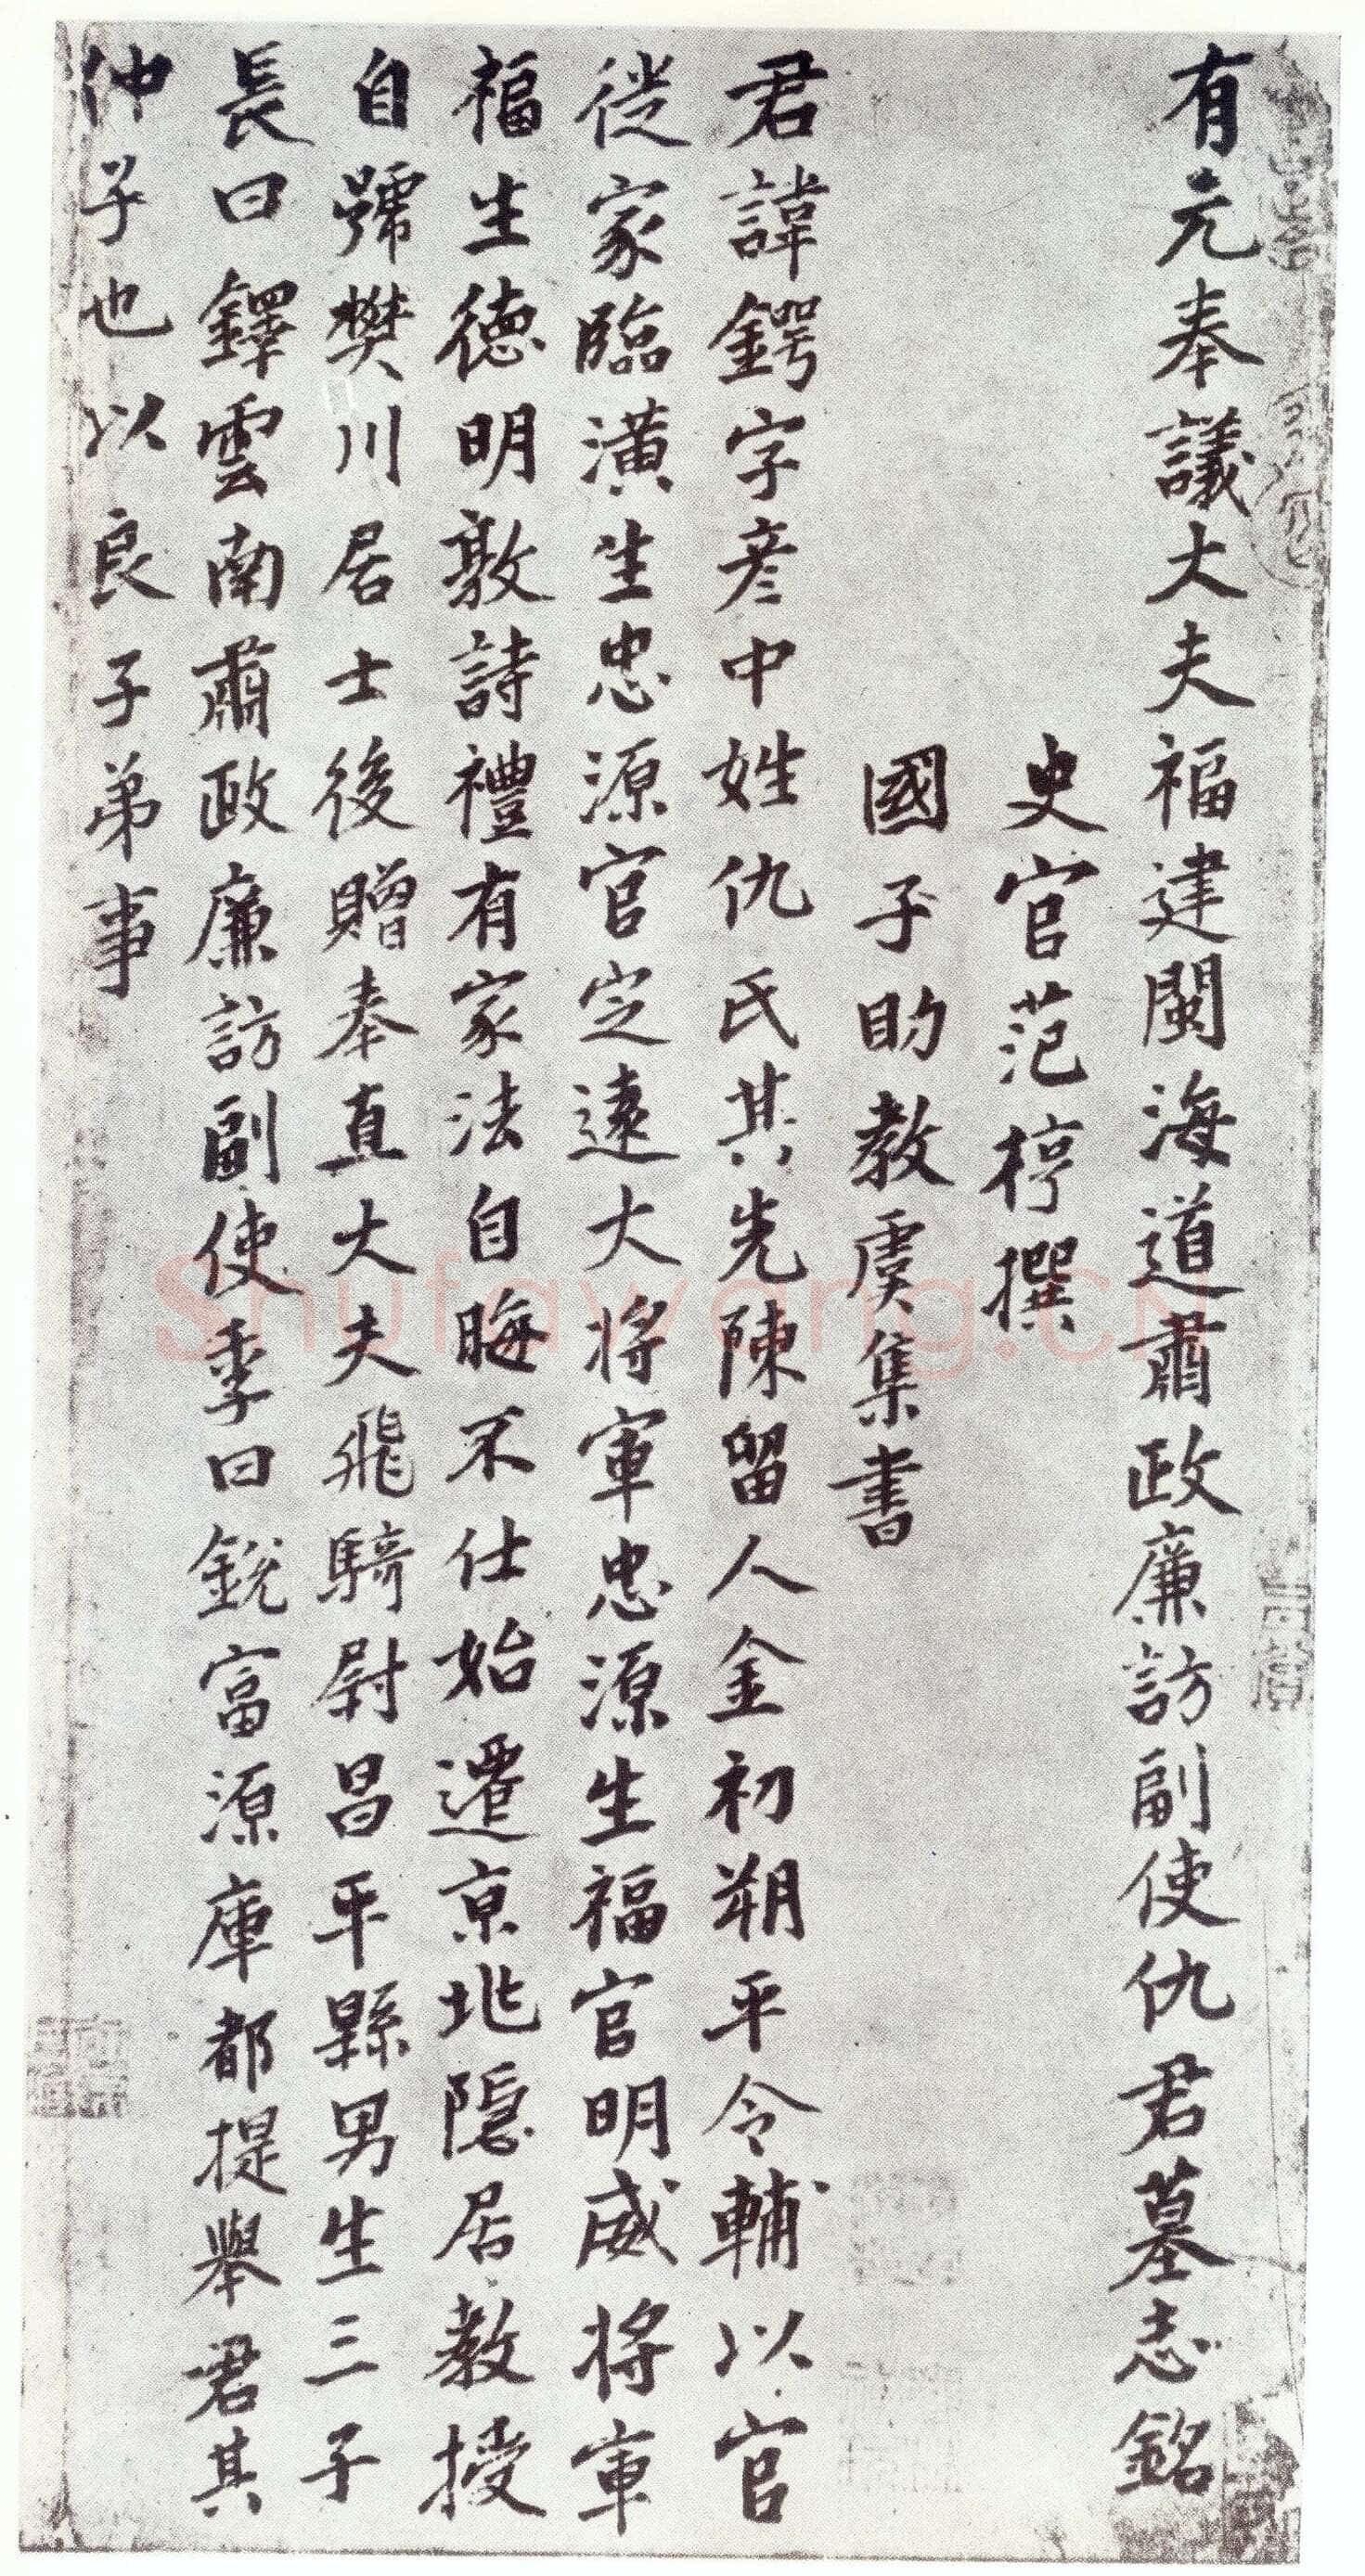 有元奉議大夫福建閩海道肅政廉訪副使仇君墓志銘
史官范梈撰
國子助教虞集書
君諱鍔字彦中姓仇氏其先陳留人金初朔平令輔以官
徙家臨潢生忠源官定遠大将軍忠源生福官明威将軍
福生德明敦詩禮有家法自晦不仕始遷京兆隠居教授
自號樊川居士後贈奉直大夫飛騎尉昌平縣男生三子
長曰鐸雲南肅政廉訪副使季曰銳富源庫都提舉君其
仲子也以良子弟事
shufawang.cn